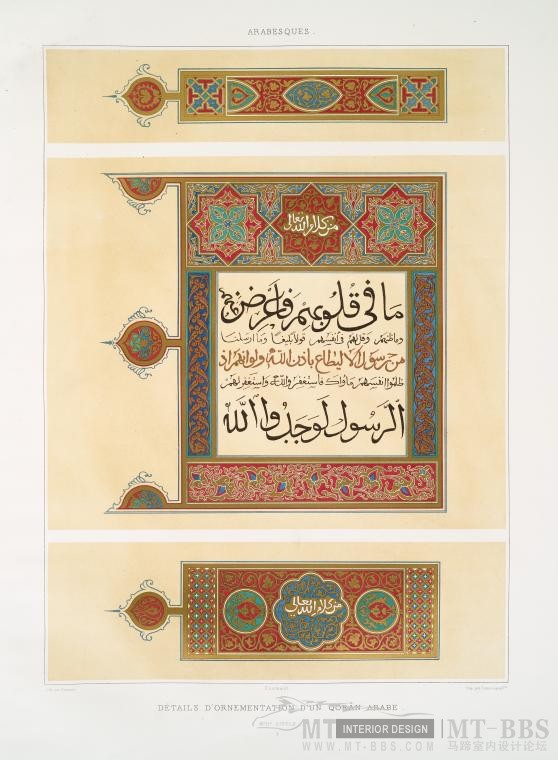 ARABESQUES.
من كلام الله تعالى
ما فى قلوبهم فأعرض
وعظهم وقل لهم فى أنفسهم قولا بليغا وما ارسلنا
من رسول الا ليطاع باذن الله ولو انهم اذ
ظلموا انفسهم جاؤك فاستغفروا الله واستغفر لهم
الرسول لوجدوا الله
من كلام الله تعالى
DÉTAILS D'ORNEMENTATION D'UN QORÂN ARABE.
MT INTERIOR DESIGN MT-BBS
WWW.MT-BBS.COM 马蹄室内设计论坛